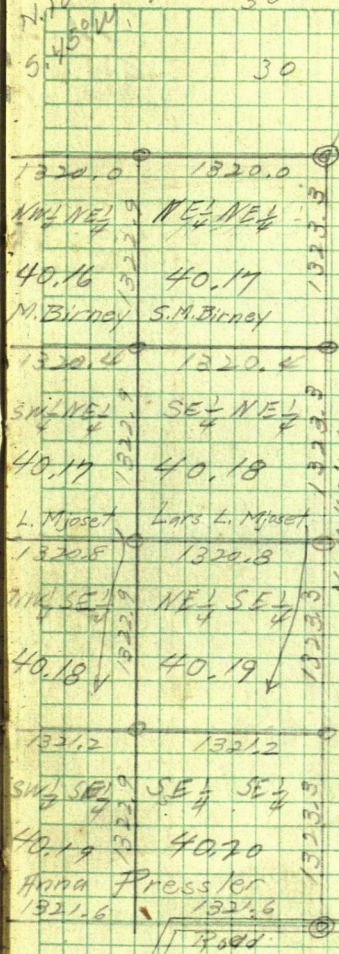 30
S. 45° W.
30
1320.0 1320.0
NW¼ NE¼ NE¼ NE¼
1322.9 1323.3
40.16 40.17
M. Birney S.M. Birney
1320.4 1320.4
SW¼ NE¼ SE¼ NE¼
1322.9 1323.3
40.17 40.18
L. Mjoset Lars L. Mjoset
1320.8 1320.8
NW¼ SE¼ NE¼ SE¼
1322.9 1323.3
40.18 40.19
1321.2 1321.2
SW¼ SE¼ SE¼ SE¼
1322.9 1323.3
40.19 40.20
Anna Pressler
1321.6 1321.6
Road